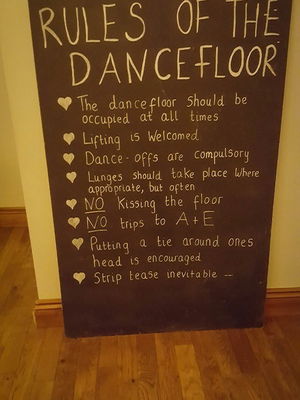 RULES OF THE
DANCEFLOOR
The dancefloor should be
occupied at all times
Lifting is Welcomed
Dance-offs are compulsory
Lunges should take place where
appropriate, but often
NO Kissing the floor
NO trips to A+E
Putting a tie around ones
head is encouraged
Strip tease inevitable --